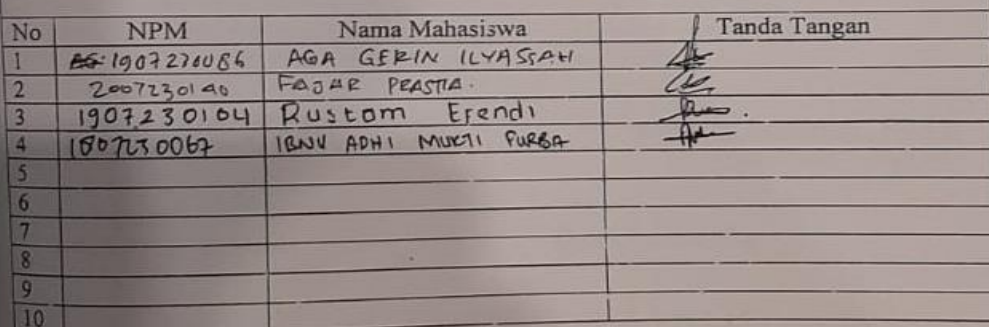 No NPM Nama Mahasiswa Tanda Tangan
1 1907230086 AGA GERIN ILYASSAH
2 2007230140 FAJAR PRASTIA.
3 1907230104 Rustom Efendi
4 1807230067 IBNU ADHI MUKTI PURBA
5
6
7
8
9
10